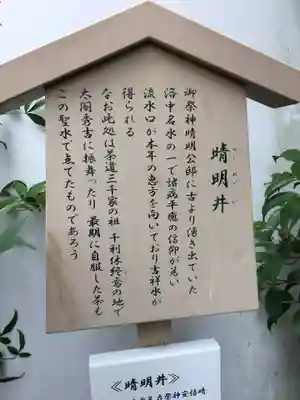 晴明井
御祭神晴明公邸に古より湧き出ていた
洛中名水の一で諸病平癒の信仰が篤い
流水口が本年の恵方を向いており吉祥水が
得られる
なお此処は茶道三千家の祖 千利休終焉の地で
太閤秀吉に振舞ったり 最期に自服した茶も
この聖水で点てたものであろう
《晴明井》